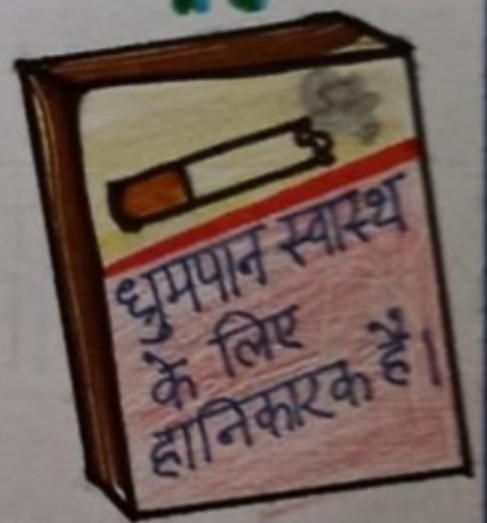 धुमपान स्वास्थ
के लिए
हानिकारक है।